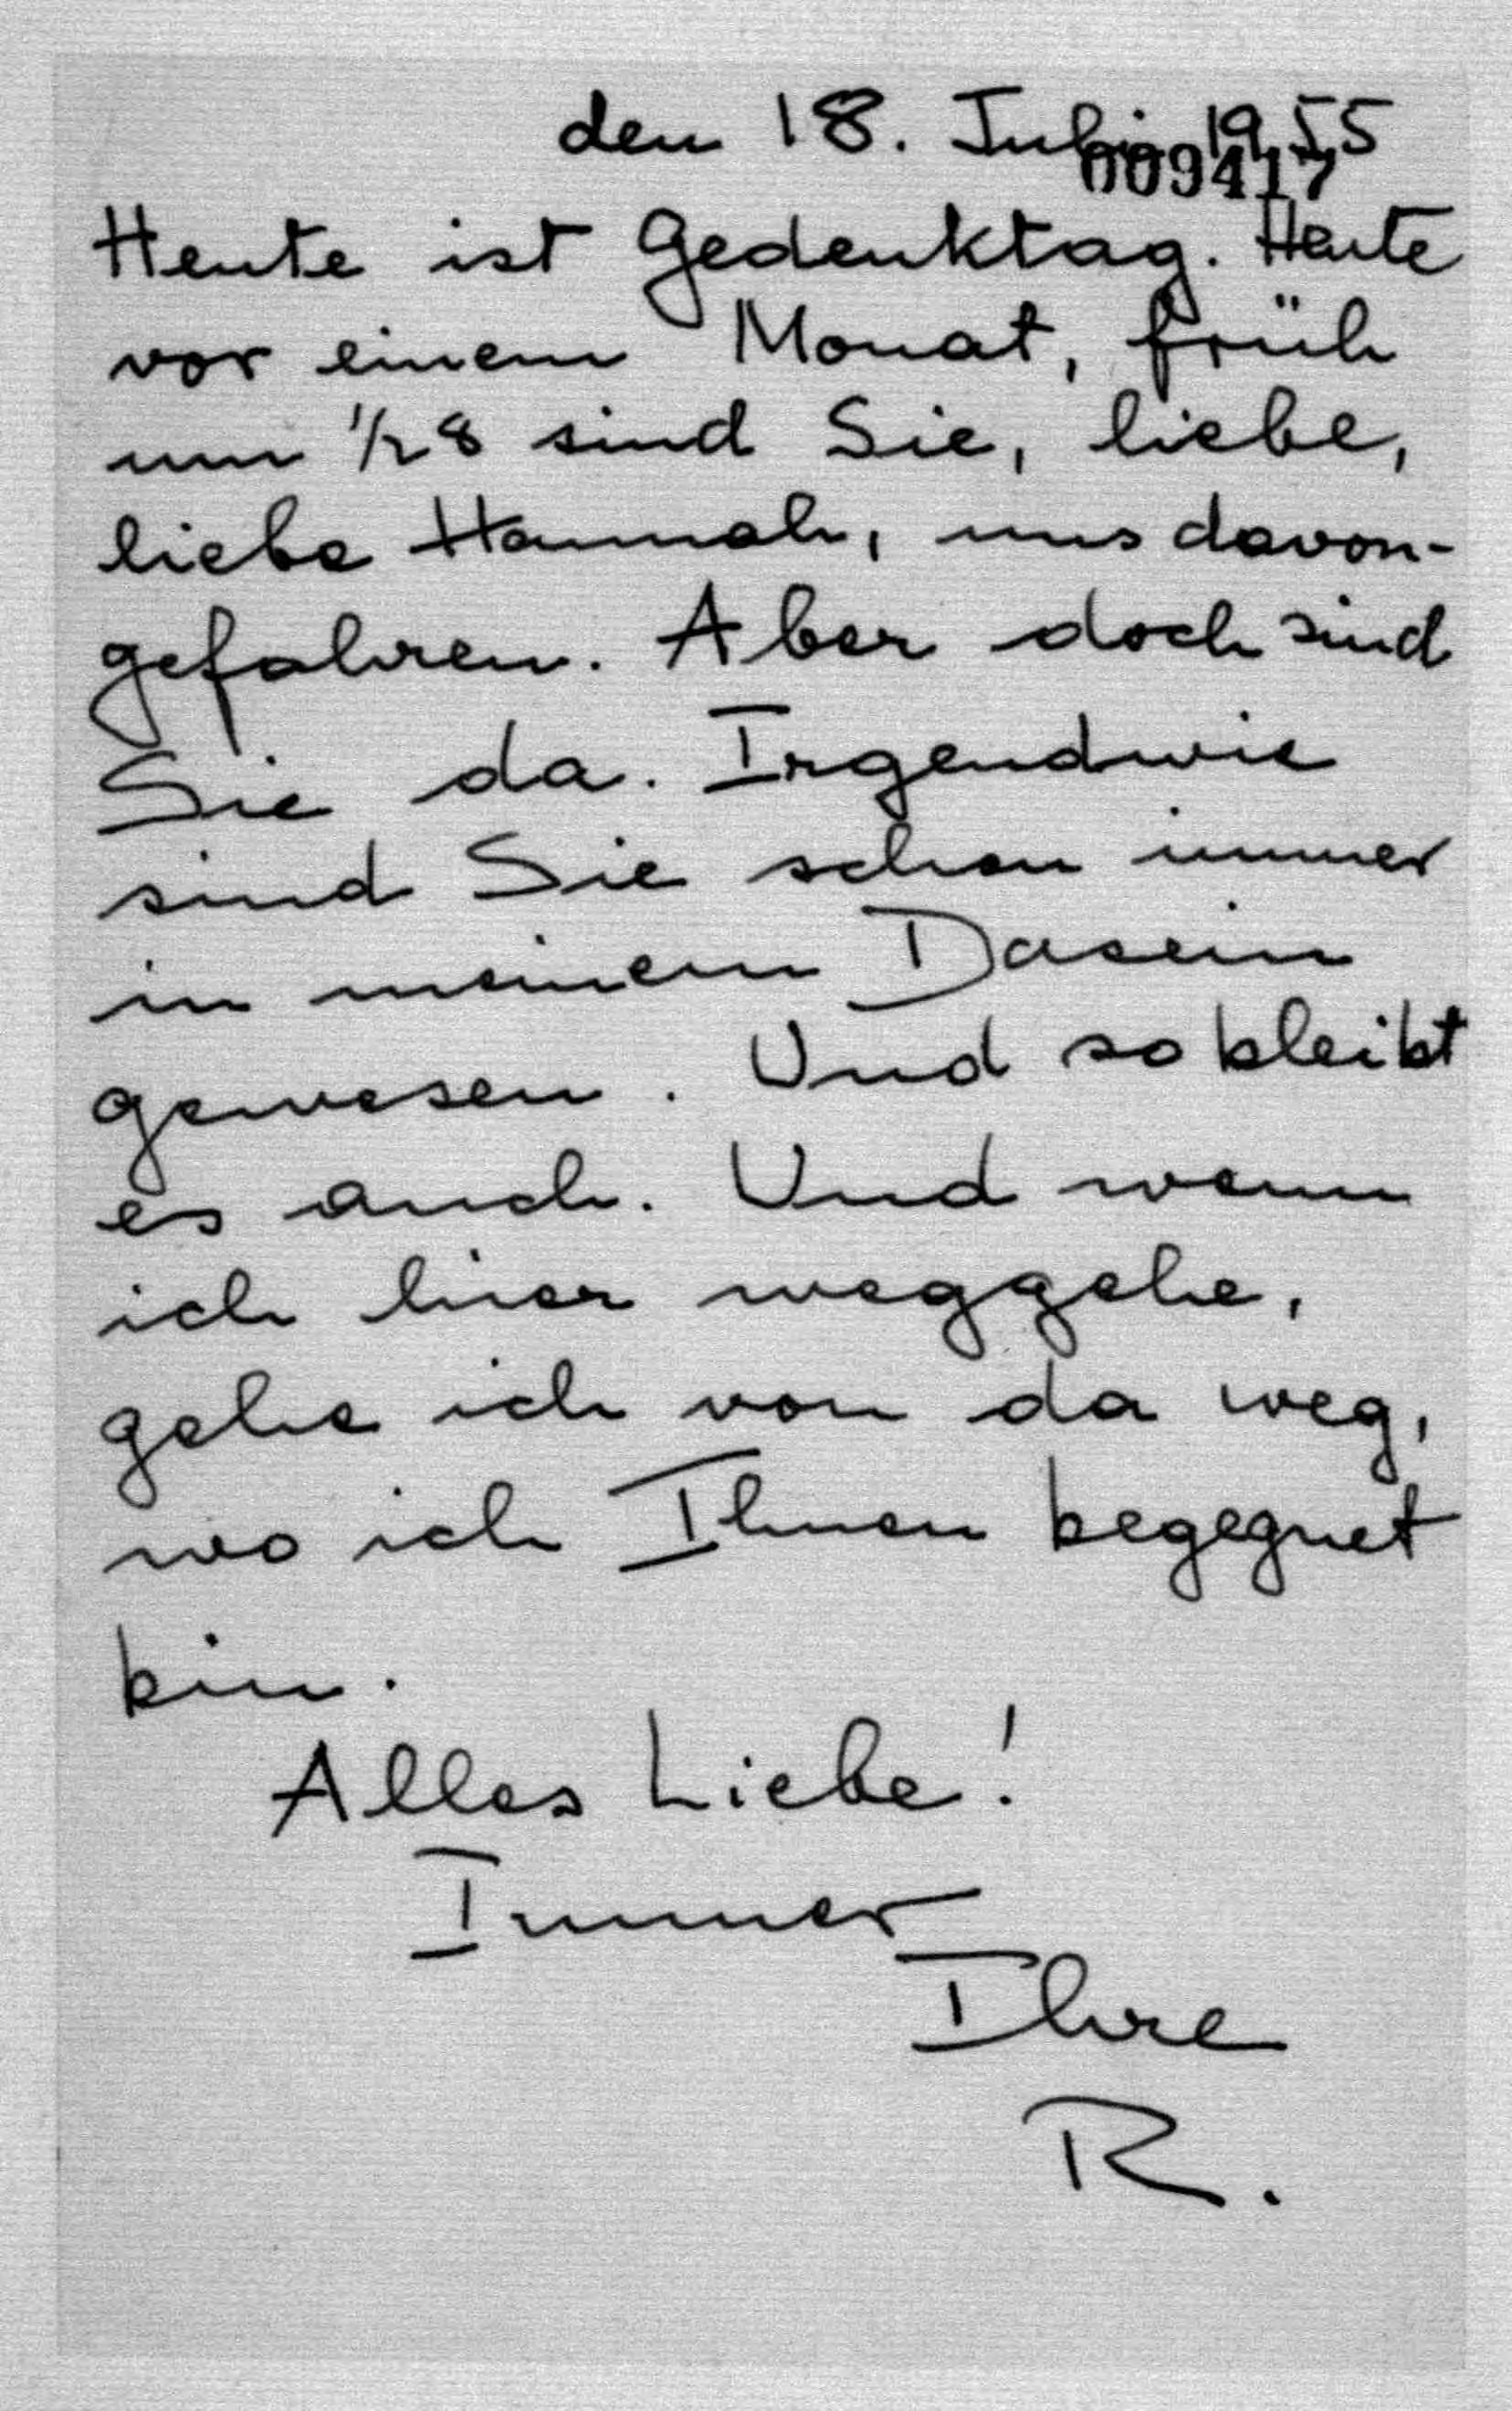 den 18. Juli 1955
009417
Heute ist Gedenktag. Heute
vor einem Monat, früh
um 1/2 8 sind Sie, liebe,
liebe Hannah, uns davon-
gefahren. Aber doch sind
Sie da. Irgendwie
sind Sie schon immer
in meinem Dasein
gewesen. Und so bleibt
es auch. Und wenn
ich hier weggehe,
gehe ich von da weg,
wo ich Ihnen begegnet
bin.
Alles Liebe!
Immer
Ihre
R.